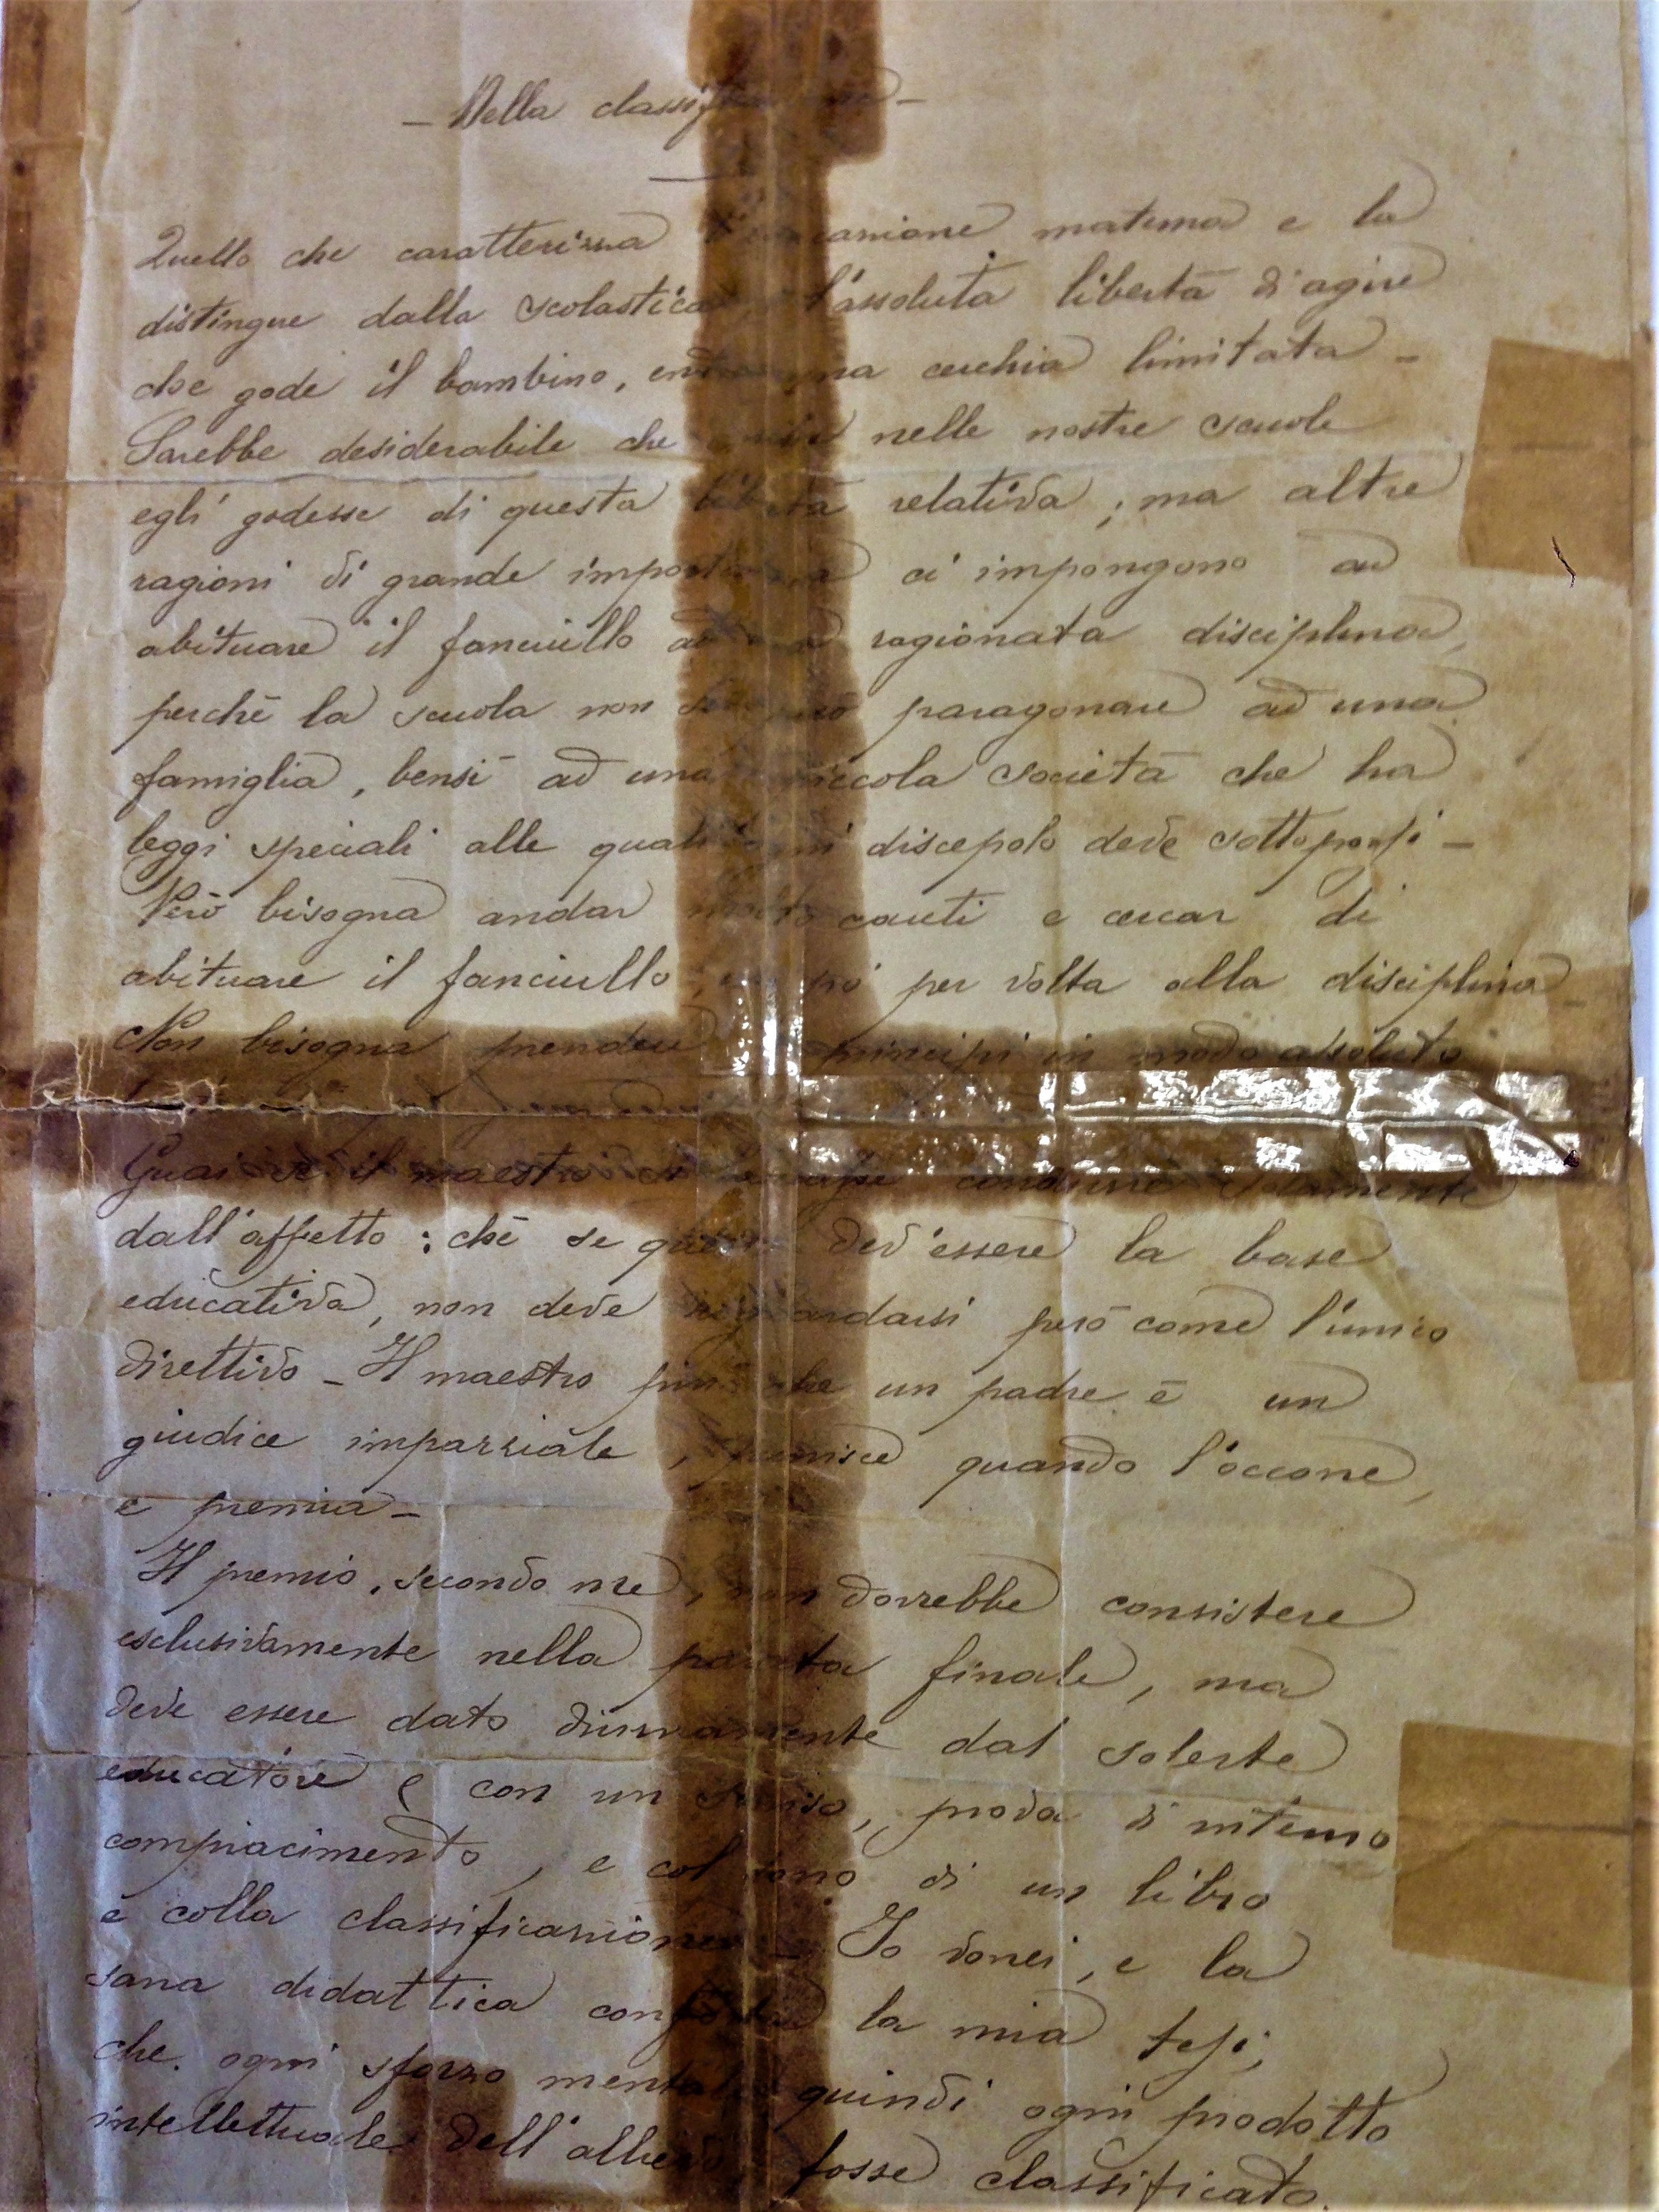 – Della
Quello che caratterizza materna e la
distingue dalla scolastica l'assoluta libertà di agire
che gode il bambino, cerchia limitata –
Sarebbe desiderabile che nelle nostre scuole
egli godesse di questa libertà relativa; ma altre
ragioni di grande importanza ci impongono ad
abituare il fanciullo ad una ragionata disciplina,
perchè la scuola non si può paragonare ad una
famiglia, bensì ad una piccola società che ha
leggi speciali alle quali ogni discepolo deve sottoporsi –
Però bisogna andar molto cauti e cercar di
abituare il fanciullo, un pò per volta alla disciplina –
Non bisogna prendere principi in modo assoluto
Guai se il maestro si lasciasse condurre solamente
dall'affetto: chè se questo dev'essere la base
educativa, non deve riguardarsi però come l'unico
direttivo – Il maestro più che un padre è un
giudice imparziale, punisce quando l'occorre,
e premia –
Il premio, secondo me, non dovrebbe consistere
esclusivamente nella parata finale, ma
deve essere dato diurnamente dal solerte
educatore e con un sorriso, prova di interno
compiacimento, e col dono di un libro
e colla classificazione – Io vorrei, e la
sana didattica conforta la mia tesi,
che ogni sforzo mentale quindi ogni prodotto
intellettuale dell'allievo, fosse classificato.